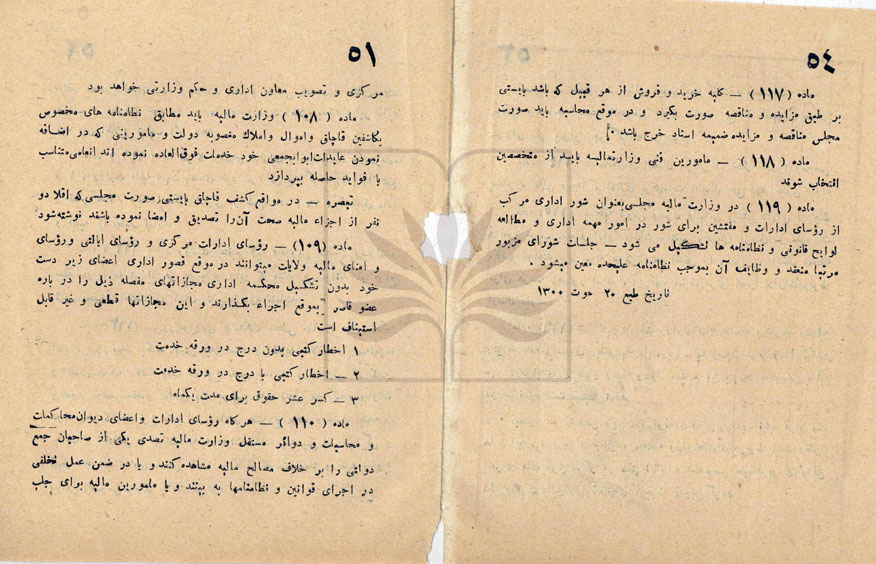 ٥٤
ماده (۱۱۷) — کلیه خرید و فروش از هر قبیل که باشد بایستی
بر طبق مزایده و مناقصه صورت بگیرد و در موقع محاسبه باید صورت
مجلس مناقصه و مزایده ضمیمه اسناد خرج باشد
ماده (۱۱۸) — مامورین فنی وزارتمالیه باید از متخصصین
انتخاب شوند
ماده (۱۱۹) در وزارت مالیه مجلسی بعنوان شور اداری مرکب
از رؤسای ادارات و مفتشین برای شور در امور مهمه اداری و مطالعه
لوایح قانونی و نظامنامه ها تشکیل می شود — جلسات شورای مزبور
مرتبا منعقد و وظایف آن بموجب نظامنامه علیحده معین میشود .
تاریخ طبع ۲۰ حوت ۱۳۰۰
٥١
مرکزی و تصویب معاون اداری و حکم وزارتی خواهد بود
ماده (۱۰۸) وزارت مالیه باید مطابق نظامنامه های مخصوص
بکاشفین قاچاق و اموال و املاک مغصوبه دولت و مامورینی که در اضافه
نمودن عایدات ابوابجمعی خود خدمات فوق‌العاده نموده اند انعامی متناسب
با فواید حاصله بپردازد
تبصره — در مواقع کشف قاچاق بایستی صورت مجلسی که اقلا دو
نفر از اجزاء مالیه صحت آن را تصدیق و امضا نموده باشند نوشته شود
ماده (۱۰۹) — رؤسای ادارات مرکزی و رؤسای ایالتی و رؤسای
و امنای مالیه ولایات میتوانند در موقع قصور اداری اعضای زیر دست
خود بدون تشکیل محکمه اداری مجازاتهای مفصله ذیل را در باره
عضو قاصر بموقع اجراء بگذارند و این مجازاتها قطعی و غیر قابل
استیناف است
۱ اخطار کتبی بدون درج در ورقه خدمت
۲ — اخطار کتبی با درج در ورقه خدمت
۳ — کسر عشر حقوق برای مدت یکماه
ماده (۱۱۰) — هرگاه رؤسای ادارات و اعضای دیوان محاکمات
و محاسبات و دوائر مستقل وزارت مالیه تصدی یکی از صاحبان جمع
دولتی را بر خلاف مصالح مالیه مشاهده کنند و یا در ضمن عمل تخلفی
در اجرای قوانین و نظامنامها به بینند و یا مامورین مالیه برای جلب